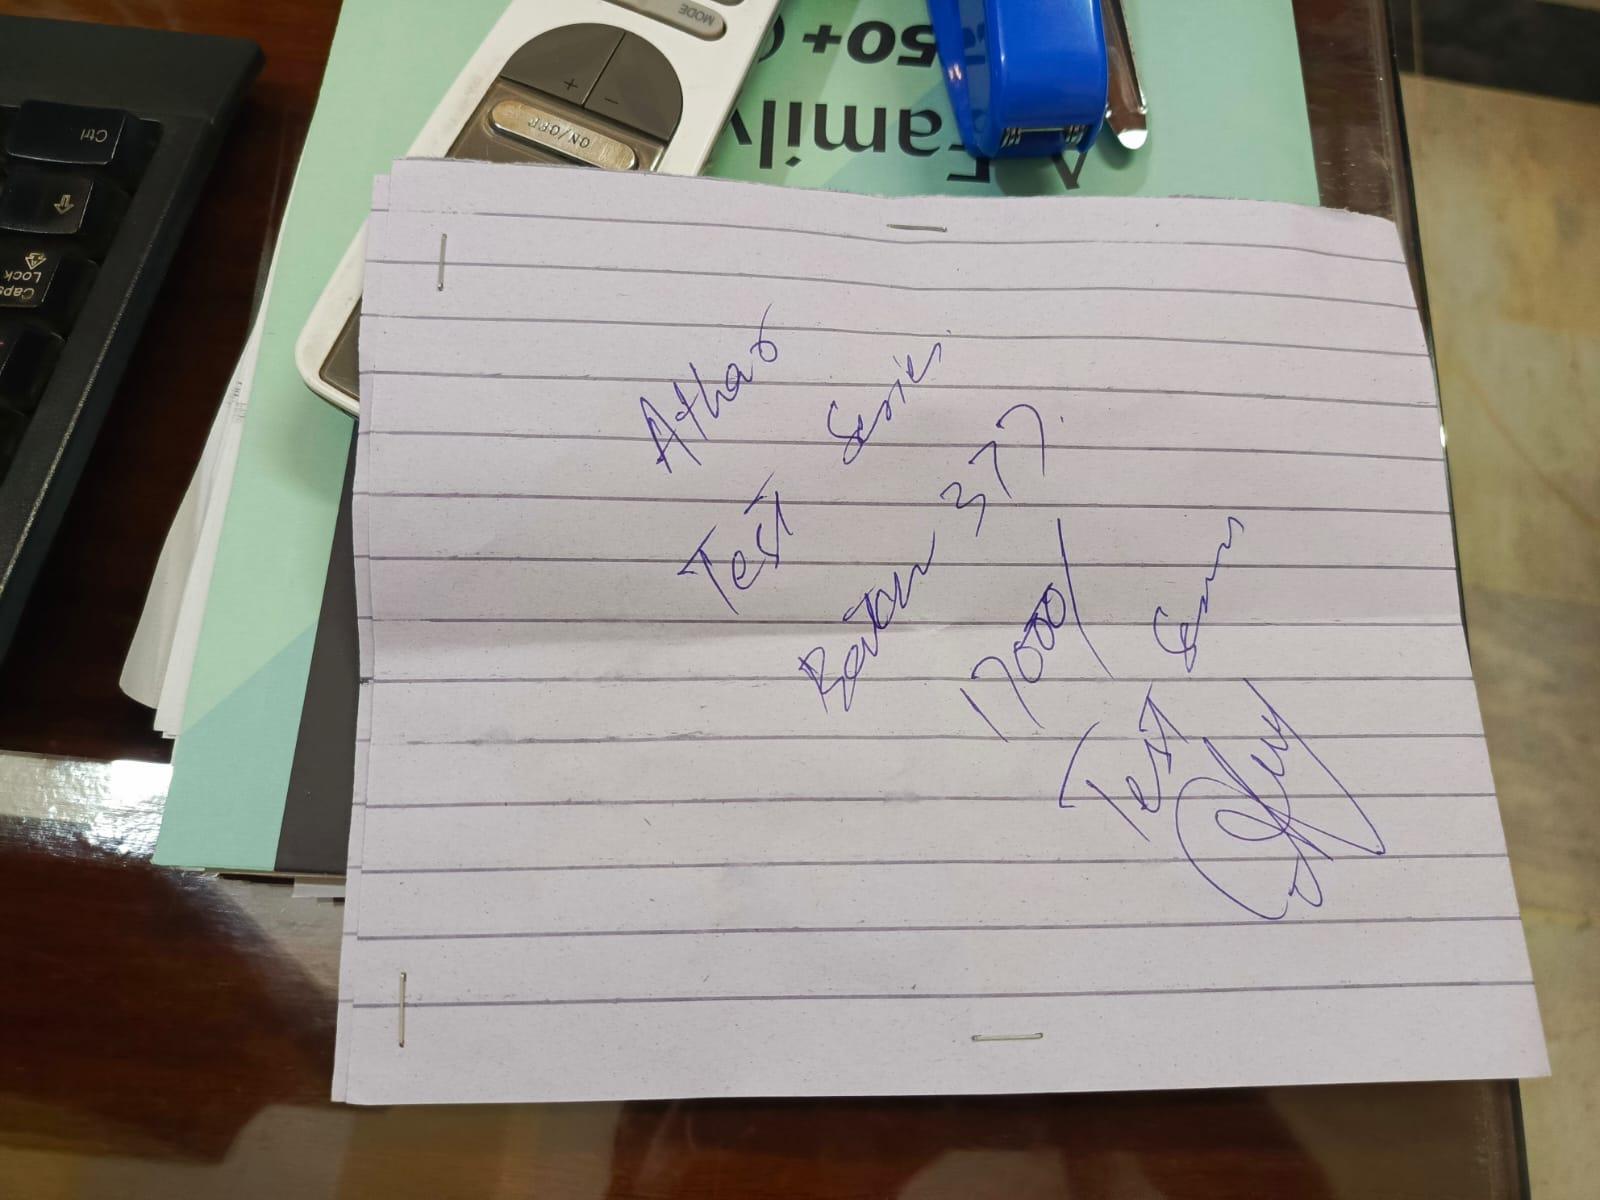 MODE
+ -
ON/OFF
50+
A Family
Ctrl
Caps
Lock
Athar
Test Series
Batch 377.
17000/
Test Series